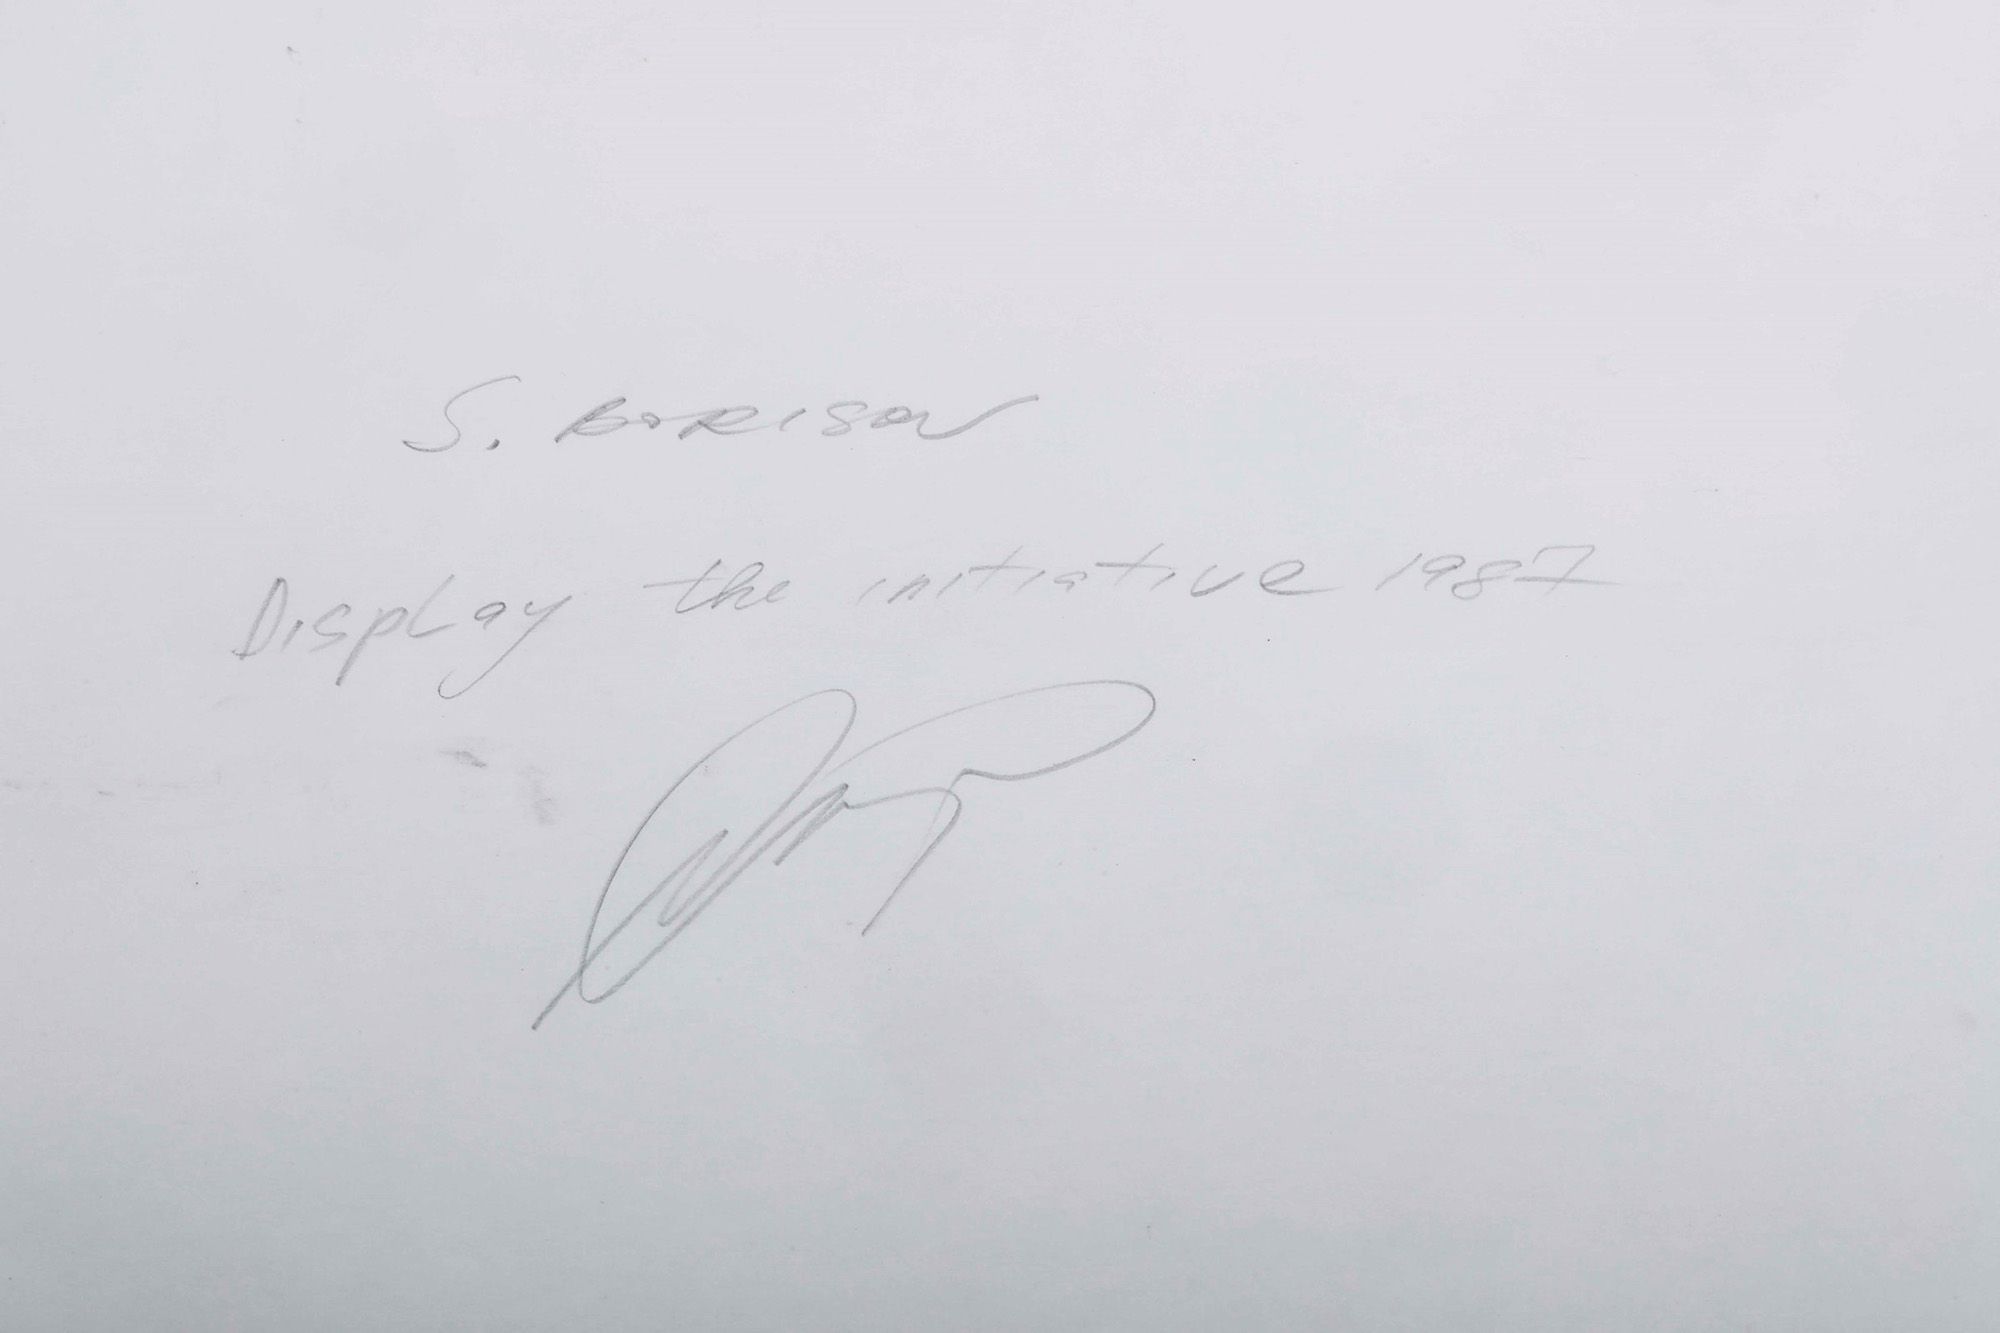 S. BORISOV
Display the initiative 1987